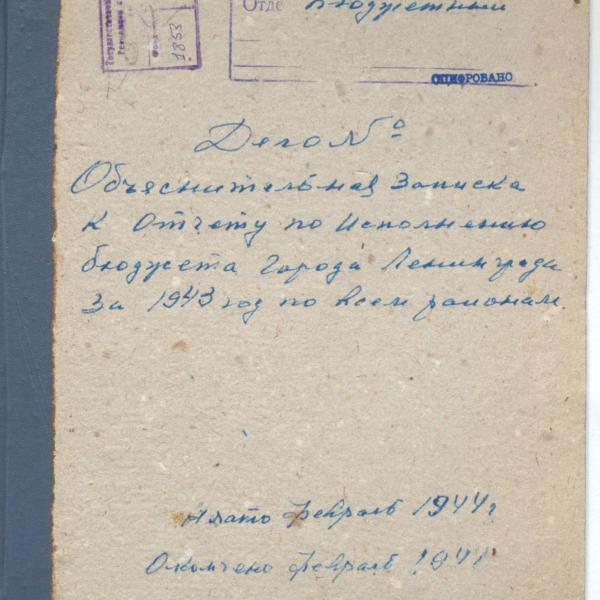 Отде Бюджетный
1853
ОЦИФРОВАНО
Дело №
Объяснительная Записка
к Отчету по Исполнению
бюджета Города Ленинграда
За 1943 год по всем районам.
Начато февраль 1944 г
Окончено февраль 1944